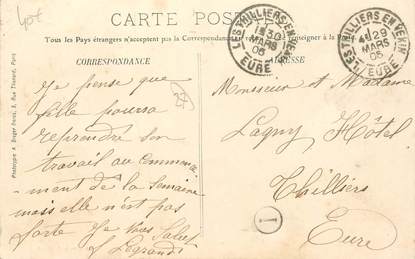 40f
CARTE POSTALE
Tous les Pays étrangers n'acceptent pas la Correspondance
renseigner à la Poste
CORRESPONDANCE
ADRESSE
LES THILLIERS-EN-VEXIN
1E 30
MARS
05
EURE
LES THILLIERS-EN-VEXIN
29
MARS
05
EURE
Je pense que
elle pourra
reprendre son
travail au commence
ment de la Semaine
mais elle n'est pas
forte Je vous Salue
Legrand
Monsieur et Madame
Lagny Hôtel
Thilliers
Eure
1